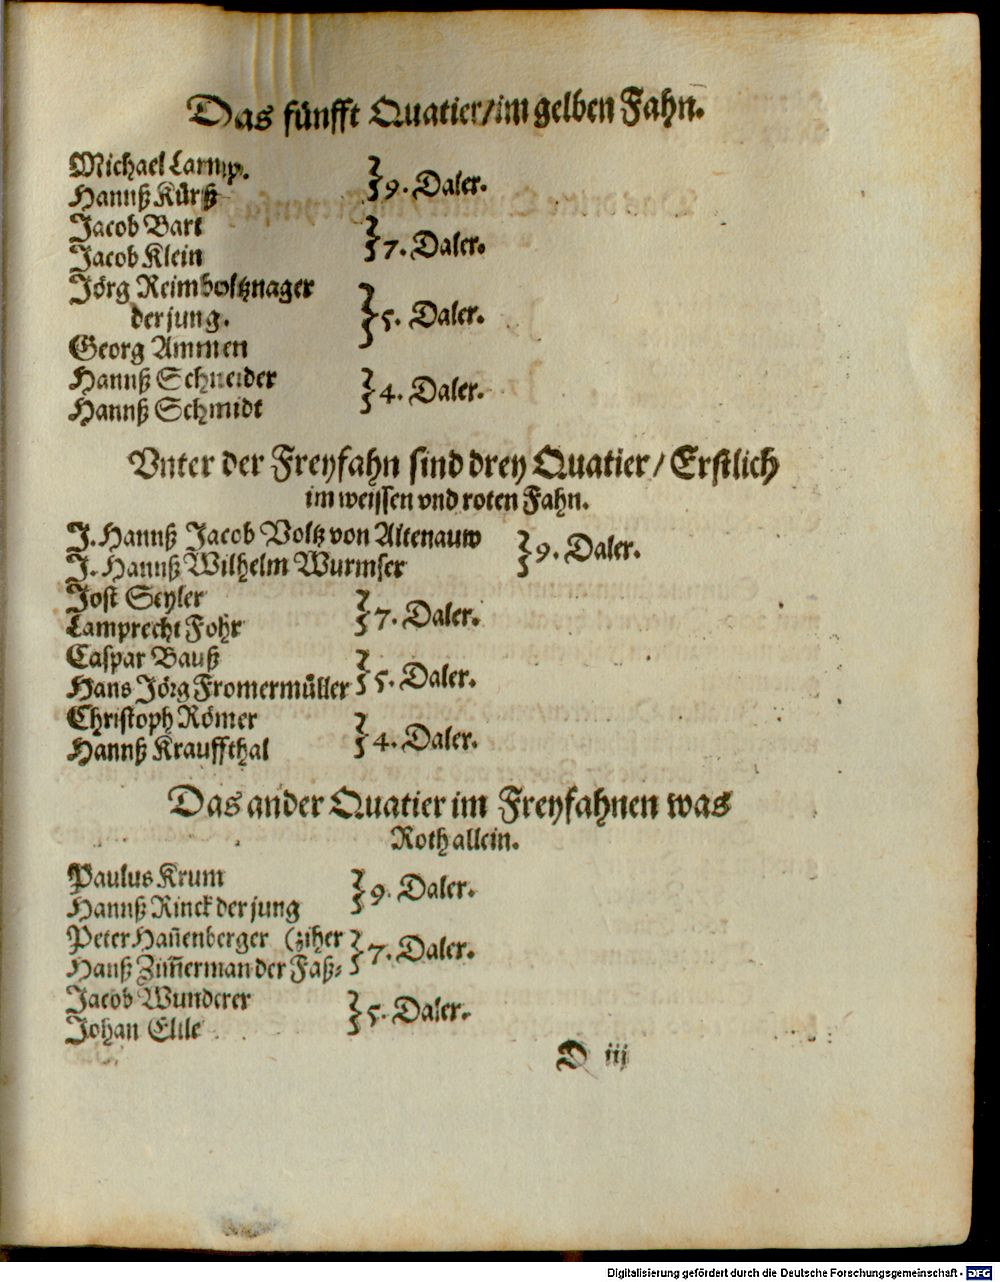 Das fünfft Quatier/im gelben Fahn.
Michael Lamp.
Hannß Kürß } 9. Daler.
Jacob Bart
Jacob Klein } 7. Daler.
Jörg Reimboltznager
der jung. } 5. Daler.
Georg Ammen
Hannß Schneider
Hannß Schmidt } 4. Daler.
Vnter der Freyfahn sind drey Quatier/ Erstlich
im weissen vnd roten Fahn.
J. Hannß Jacob Voltz von Altenauw
J. Hannß Wilhelm Wurmser } 9. Daler.
Jost Seyler
Lamprecht Fohr } 7. Daler.
Caspar Bauß
Hans Jörg Fromermüller } 5. Daler.
Christoph Römer
Hannß Krauffthal } 4. Daler.
Das ander Quatier im Freyfahnen was
Roth allein.
Paulus Krum
Hannß Rinck der jung } 9. Daler.
Peter Hañenberger (ziher
Hanß Zim̃erman der Faß- } 7. Daler.
Jacob Wunderer
Johan } 5. Daler.
D iij
Digitalisierung gefördert durch die Deutsche Forschungsgemeinschaft - DFG